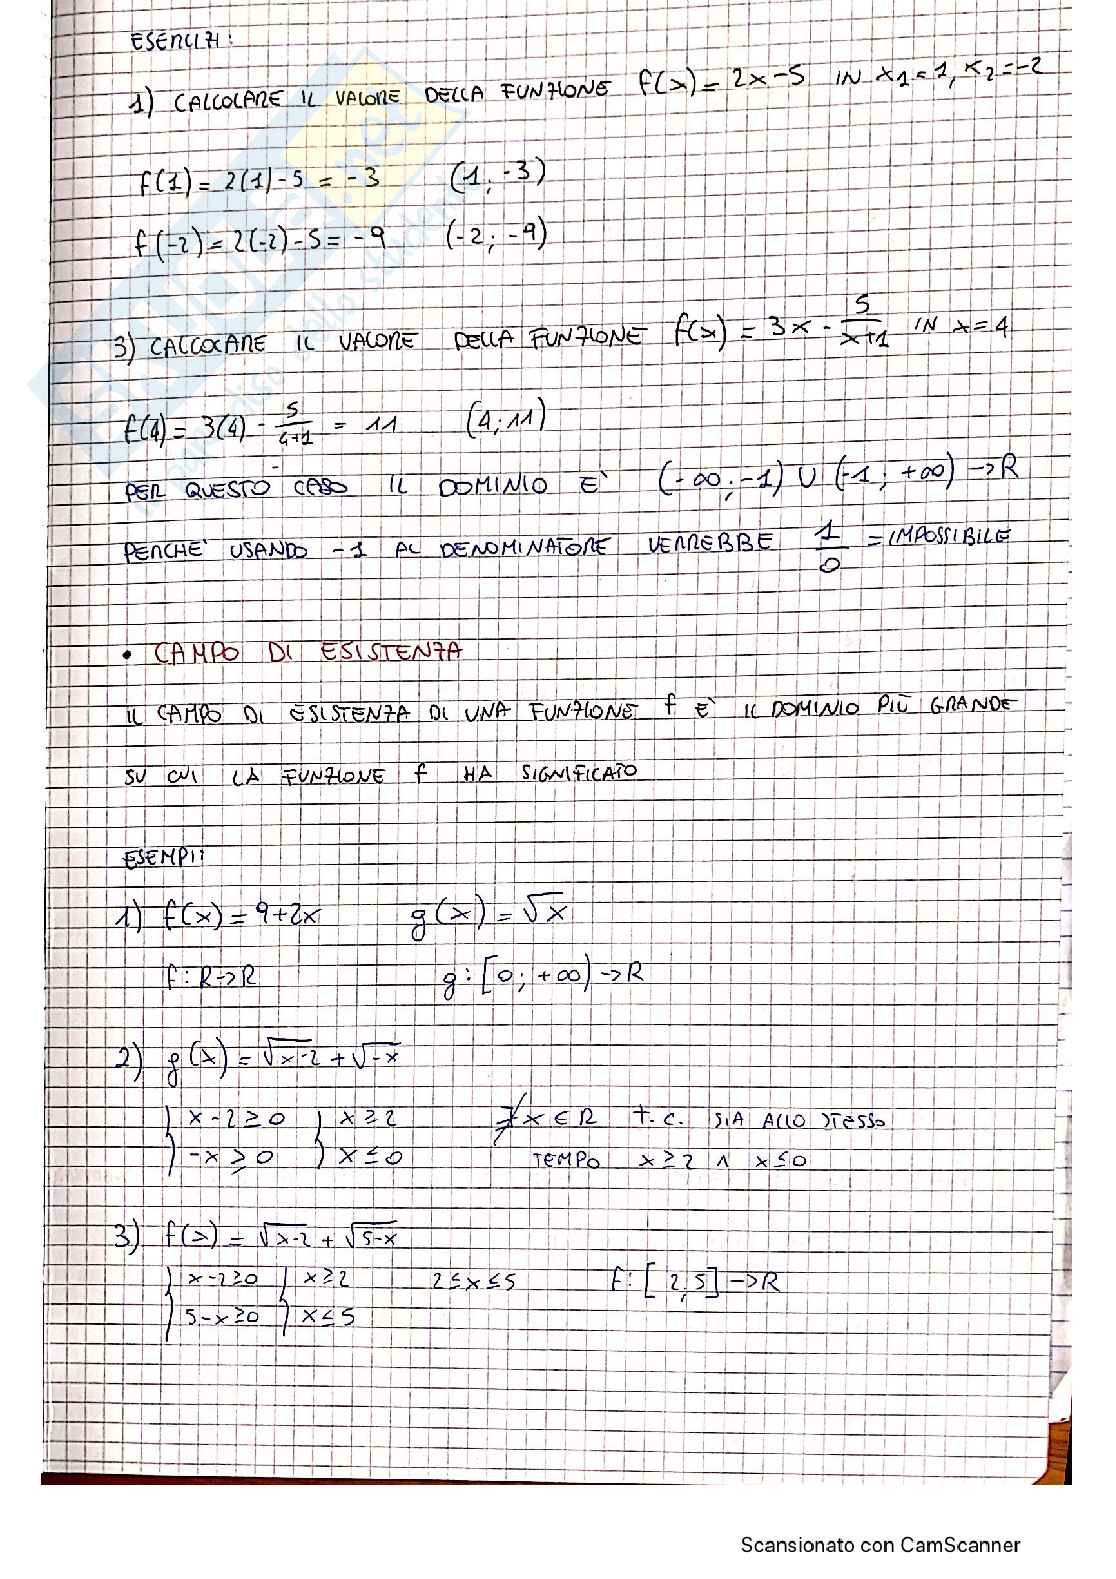 ESERCIZI:
1) CALCOLARE IL VALORE DELLA FUNZIONE f(x) = 2x-5 IN x1=1, x2=-2
f(1) = 2(1)-5 = -3 (1; -3)
f(-2) = 2(-2)-5 = -9 (-2; -9)
3) CALCOLARE IL VALORE DELLA FUNZIONE f(x) = 3x - 5/(x+1) IN x=4
f(4) = 3(4) - 5/(4+1) = 11 (4; 11)
PER QUESTO CASO IL DOMINIO E' (-∞; -1) ∪ (-1; +∞) -> R
PERCHE' USANDO -1 AL DENOMINATORE VERREBBE 1/0 = IMPOSSIBILE
• CAMPO DI ESISTENZA
IL CAMPO DI ESISTENZA DI UNA FUNZIONE f E' IL DOMINIO PIÙ GRANDE
SU CUI LA FUNZIONE f HA SIGNIFICATO
ESEMPI:
1) f(x) = 9+2x g(x) = √x
f: R->R g: [0; +∞) -> R
2) g(x) = √x-2 + √-x
x-2≥0 x≥2 ∄x ∈ R T.C. SIA ALLO STESSO
-x≥0 x≤0 TEMPO x≥2 ∧ x≤0
3) f(x) = √x-2 + √5-x
x-2≥0 x≥2 2≤x≤5 f: [2; 5] -> R
5-x≥0 x≤5
Scansionato con CamScanner